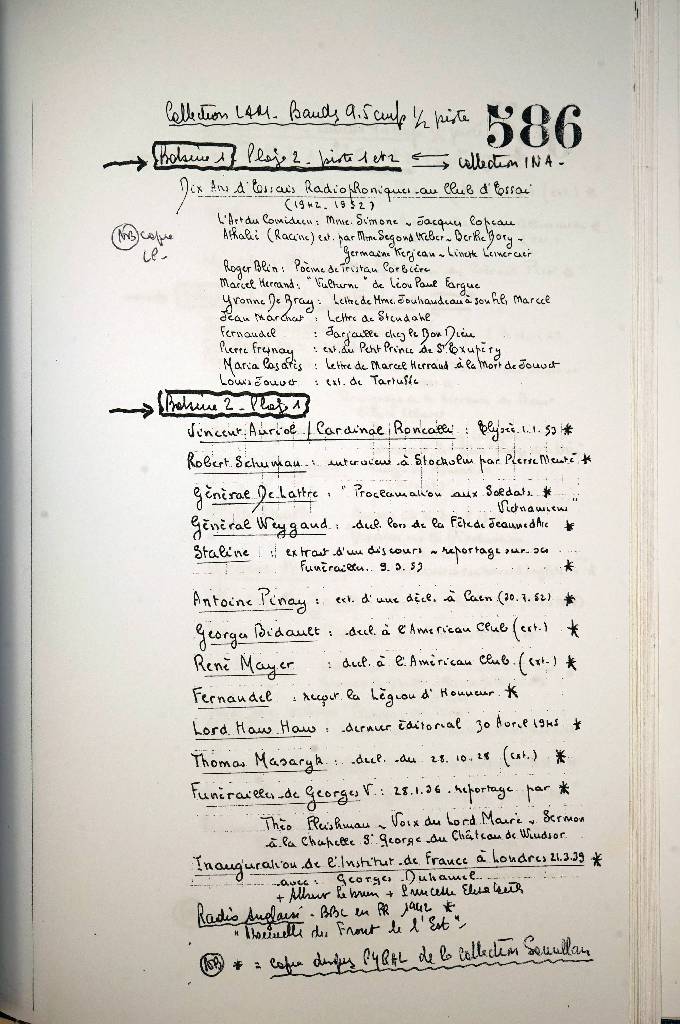 Collection Bandes 9.5 cm/s 1/2 piste
586
Bobine 1 Plage 2 - piste 1 et 2 collection INA -
Dix Ans d'Essais Radiophoniques au Club d'Essai
(1942-1952)
NB copie
L'Art du Comédien : Mme. Simone - Jacques Copeau
Athalie (Racine) ext. par Mme Segond Weber - Berthe Bovy -
Germaine Kerjean - Linette Lemercier
Roger Blin : Poème de Tristan Corbière
Marcel Herrand : "Vulturne" de Léon Paul Fargue
Yvonne De Bray : Lettre de Mme. Jouhandeau à son fils Marcel
Jean Marchat : Lettre de Stendahl
Fernandel : Farjaille chez le Bon Dieu
Pierre Fresnay : ext. du Petit Prince de St. Exupéry
Maria Casarès : Lettre de Marcel Herrand à la Mort de Jouvet
Louis Jouvet : ext. de Tartuffe
Bobine 2 - Plage 1
Vincent Auriol / Cardinal Roncalli : Elysée 1.1.53 *
Robert Schuman : interview à Stockolm par Pierre *
Général De Lattre : "Proclamation aux Soldats *
Vietnamiens"
Général Weygand : décl. lors de la Fête de Jeanne d'Arc *
Staline : extrait d'un discours - reportage sur ses
Funérailles. 9.3.53 *
Antoine Pinay : ext. d'une décl. à Caen (20.7.52) *
Georges Bidault : décl. à l'American Club (ext.) *
René Mayer : decl. à l'Américan Club (ext.) *
Fernandel : reçoit la Légion d'Honneur *
Lord Haw Haw : dernier éditorial 30 Avril 1945 *
Thomas Masaryk : decl. du 28.10.28 (ext.) *
Funérailles de Georges V : 28.1.36 reportage par *
Théo Fleishman - Voix du Lord Maire - Sermon
à la Chapelle St George du Château de Windsor
Inauguration de l'Institut de France à Londres 21.3.39 *
avec : Georges Duhamel
+ Albert Lebrun + Princesse Elisabeth
Radio Anglaise - BBC en FR 1942 *
"Nouvelles du Front de l'Est" -
NB * = copie disques de la collection